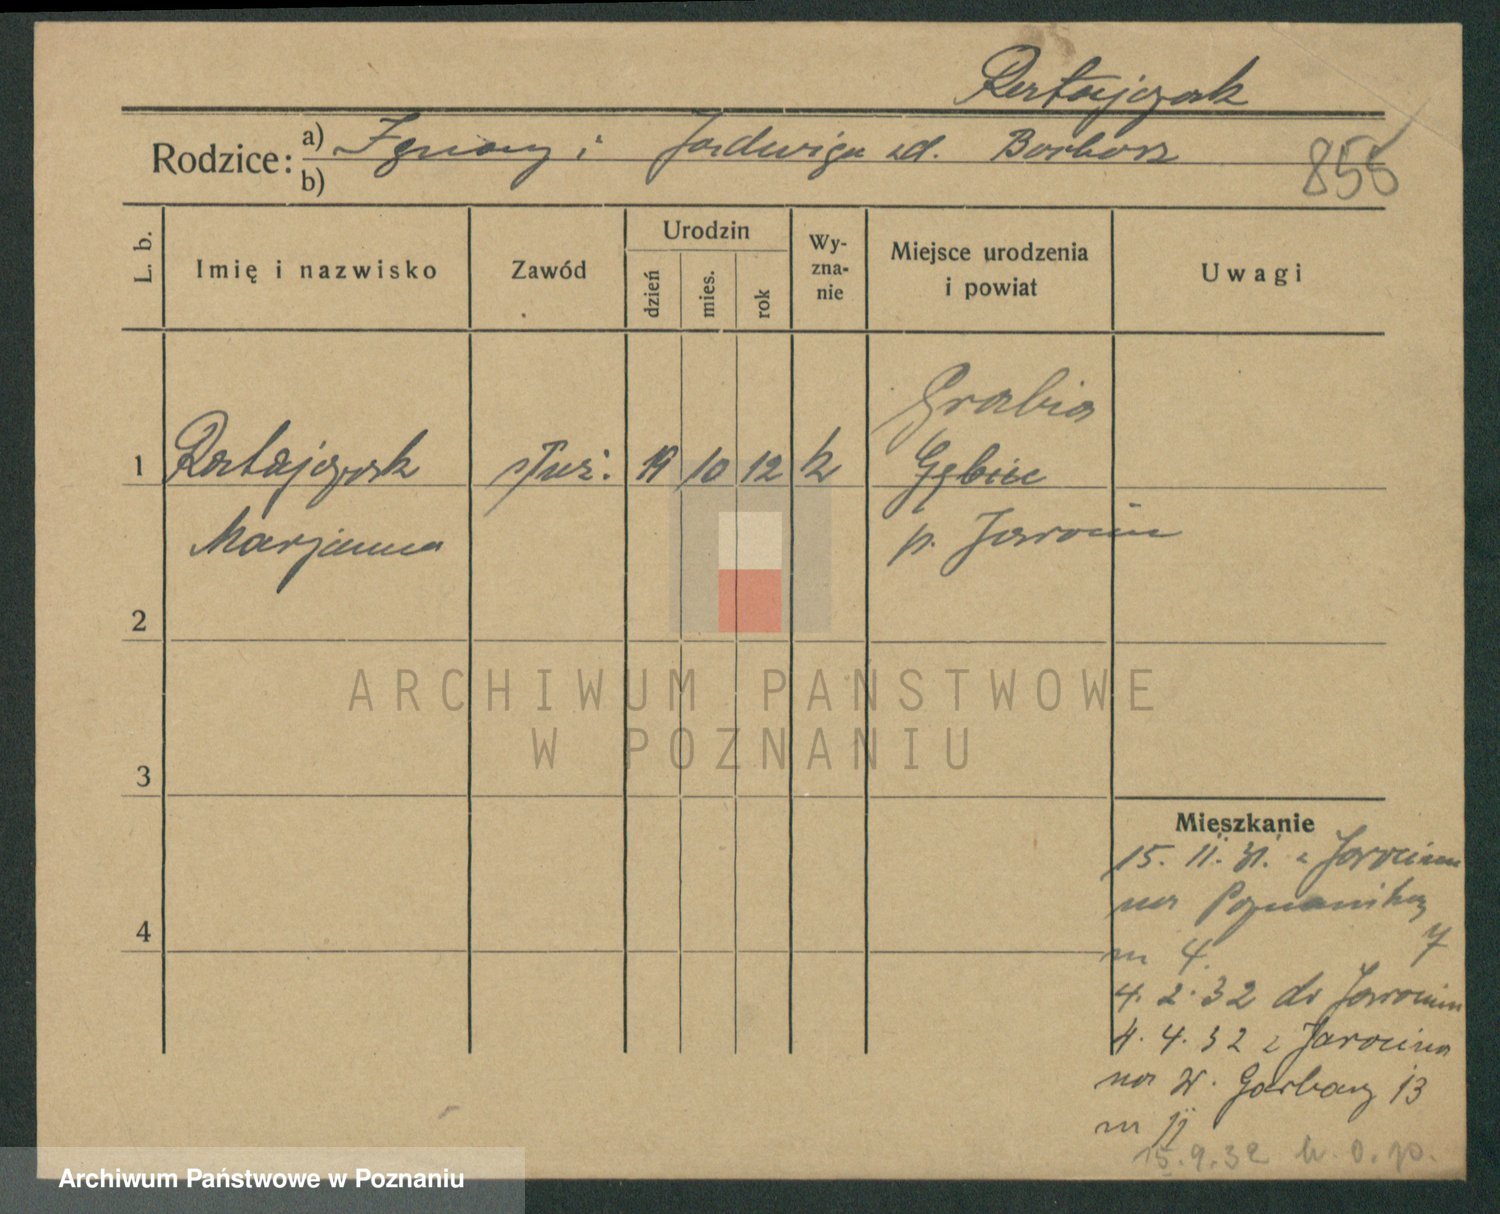 Ratajczak
Rodzice: a) Ignacy i Jadwiga zd. Barbara
b)
856
L. b.
Imię i nazwisko
Zawód
Urodzin
dzień
mies.
rok
Wy-
zna-
nie
Miejsce urodzenia
i powiat
Uwagi
Grabia
1 Ratajczak służ. 19 10 12 k Gębice
Marjanna p. Jarocin
2
ARCHIWUM PAŃSTWOWE
W POZNANIU
3
Mieszkanie
15. 11. 31. z Jarocina
na Poznańską
4
m 4. 7
4. 2. 32 do Jarocina
4. 4. 32 z Jarocina
na W. Garbary 13
m 11
15. 9. 32 k. o. p.
Archiwum Państwowe w Poznaniu